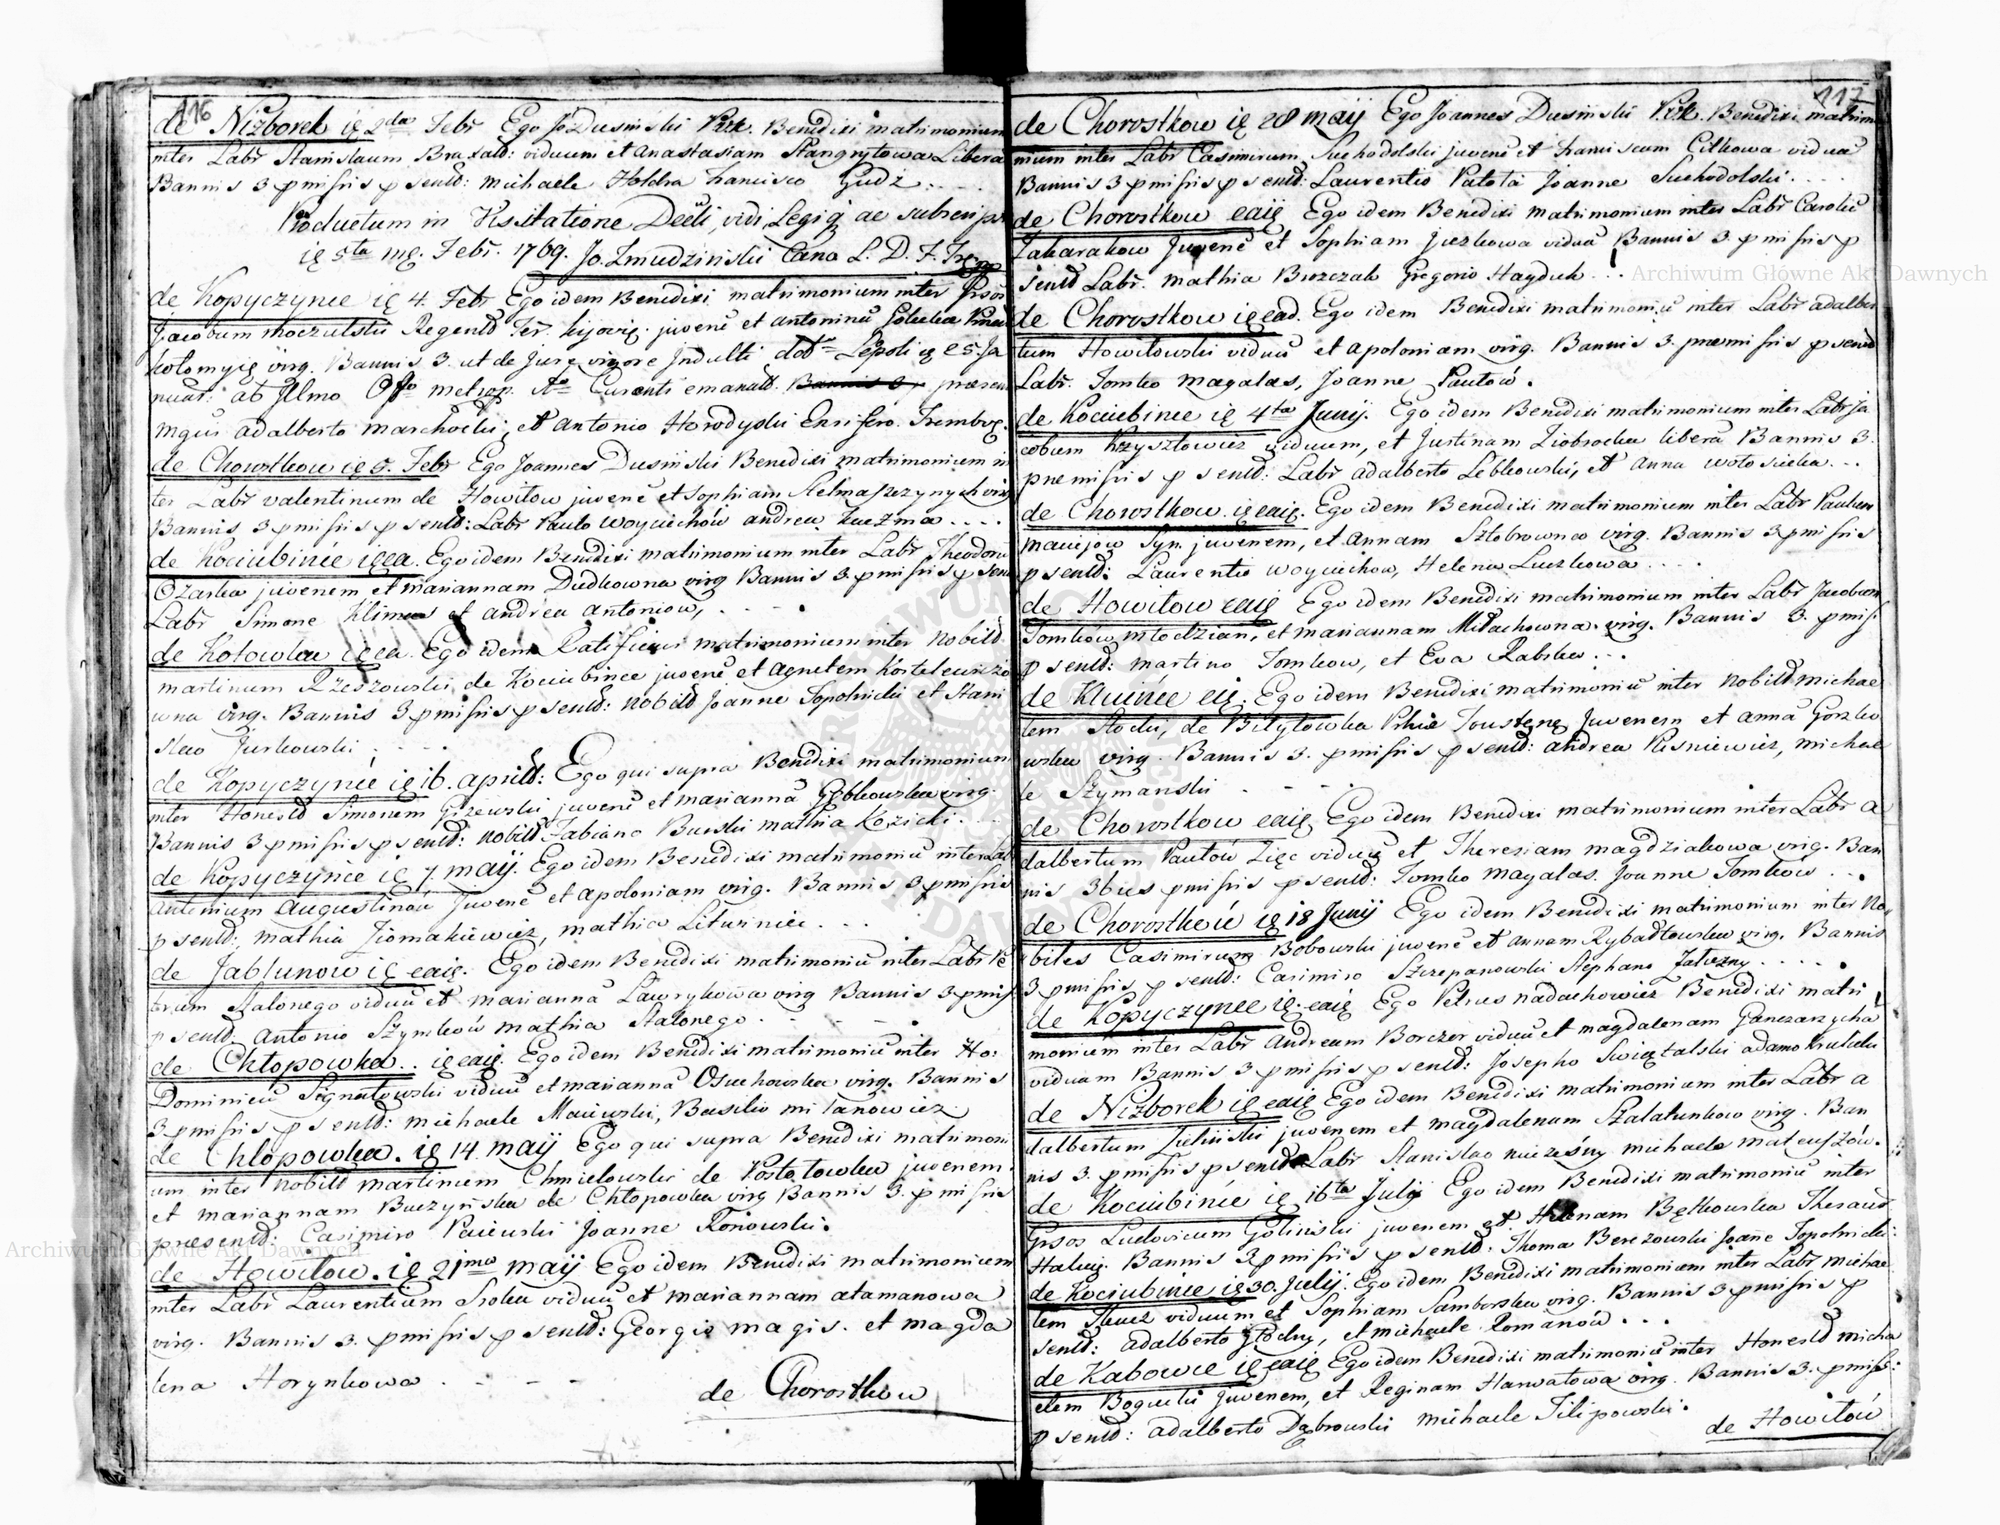 116
de Nizborek ię 2da Febr Ego Jo Dusiński Prk. Benedixi matrimonium
inter Labr Stanislaum viduum et Anastasiam Libera
Bannis 3 pmissis psentd: Michaele Holdra Francisco Gudz
Productum in Visitatione Decli, vidi, Legi q ac subscrips
ię 5ta mę. Febr. 1769. Jo. Zmudzinski Cano L. D. F.
de Kopyczynce ię 4. Febr Ego idem Benedixi matrimonium inter Grsos
Jacobum Moczulski Regentd Ter. Kijovię. juvenē et Antoninā
virg. Bannis 3. ut de jure vigore Indulti dott Leopoli ię 25 Ja
nuar: ab Almo Offo metrop. Curenti emanatd. Bannis 3 praesen
Adalberto Marchocki, et Antonio Horodyski Ensifero. Trembow.
de Chorostkow ię 5. Febr Ego Joannes Dusiński Benedixi matrimonium in
ter Labr Valentinum de Howiłow juvenē et Sophiam virg
Bannis 3 pmissis psentd: Labr Paulo Woyciechów Andrea Kuczma
de Kociubinie ię ea. Ego idem Benedixi matrimonium inter Labr Theodorū
Ozarka juvenem et Mariannam Dudkowna virg Bannis 3 pmissis psen
Labr Simone Klimas et Andrea Antoniow,
de Kotowka ię ea. Ego idem Ratificavi matrimonium inter Nobild
Martinum Rzeszowski de Kociubince juvenē et Agnetem
wna virg. Bannis 3 pmissis psentd: Nobild Joanne Topolnicki et Stani
slao Jurkowski
de Kopyczynie ię 16. Aprild: Ego qui supra Benedixi matrimonium
inter Honestd Simonem Gizewski juvenē et Mariannā Gębkowska virg.
Bannis 3 pmissis psentd: Nobild Fabiano Burski Mathia Kozicki
de Kopyczynce ię 7 maÿ. Ego idem Benedixi matrimoniū inter Lab
Antonium Augustinów Juvenē et Apoloniam virg. Bannis 3 pmissis
psentd: Mathia Ziomakiewicz, Mathia Liturinice
de Jabłunow ię eaię. Ego idem Benedixi matrimoniū inter Labr Pe
trum Stalonego viduū et Mariannā Lawrykowa virg Bannis 3 pmis
psentd: Antonio Szymków Mathia Stalonego
de Chłopowka ię eaię. Ego idem Benedixi matrimoniū inter Ho:
Dominicū Signatowski viduū et Mariannā Osuchowska virg. Bannis
3 pmissis psentd: Michaele Maiewski, Basilio Milanowicz
de Chłopowka. ię 14. maÿ Ego qui supra Benedixi matrimoni
um inter Nobild Martinum Chmielowski de Postołowka juvenem
et Mariannam Buczyńska de Chłopowka virg Bannis 3. pmissis
praesentd: Casimiro Paiewski Joanne Ronowski.
de Howiłow. ię 21mo maÿ Ego idem Benedixi matrimonium
inter Labr Laurentium Sroka viduū et Mariannam Atamanowa
virg. Bannis 3. pmissis psentd: Georgio Magis. et Magda
lena Horynkowa
de Chorostkow
117
de Chorostkow ię 28 maÿ Ego Joannes Dusinski Prk. Benedixi matrim
nium inter Labr Casimirum Suchodolski juvenē et Franciscam Citkowa vidua
Bannis 3 pmissis psentd: Laurentio Patota Joanne Suchodolski
de Chorostkow eaię Ego idem Benedixi matrimonium inter Labr Carolū
Zakarakow Juvenē et Sophiam Juzkowa viduā Bannis 3. pmissis p
sentd Labr. Mathia Burczak Gregorio Hayduk
de Chorostkow ię ead. Ego idem Benedixi matrimoniū inter Labr Adalber
tum Howiłowski viduū et Apoloniam virg. Bannis 3. praemissis psentd
Labr. Tomko Magalas, Joanne Pautów.
de Kociubince ię 4ta Junÿ. Ego idem Benedixi matrimonium inter Labr Ja
cobum Krzysztowicz viduum, et Justinam Ziobrocka libera Bannis 3.
praemissis psentd: Labr Adalberto Lebkowski, et Anna Wołosiecka
de Chorostkow. ię eaię. Ego idem Benedixi matrimonium inter Labr Paulum
Maciejów Syn juvenem, et Annam virg. Bannis 3 pmissis
psentd: Laurentio Woyciechow, Helena Luczkowa
de Howiłow eaię Ego idem Benedixi matrimonium inter Labr Jacobum
Tomków młodzian, et Mariannam Milachowna virg. Bannis 3. pmis
psentd: Martino Tomkow, et Eva Rabska
de Kluince eię. Ego idem Benedixi matrimoniū inter Nobild Michae
lem Stocki, de Biłyłowka Juvenem et Annā Gorzko
wska virg. Bannis 3. pmissis psentd: Andrea Risniewicz, Michae
le Szymanski
de Chorostkow eaię Ego idem Benedixi matrimonium inter Labr A
dalbertum Pautów Zięc viduū et Theresiam Magdziakowa virg. Ban
nis 3bus pmissis psentd: Tomko Magalas. Joanne Tomków
de Chorostków ię 18 Junÿ Ego idem Benedixi matrimonium inter No
biles Casimirum Bobowski juvenē et Annam Rybałtowska virg. Bannis
3 pmissis psentd: Casimiro Szczepanowski Stephano Zalezny
de Kopyczynce ię eaię Ego Petrus Nadachowicz Benedixi matri
monium inter Labr Andream Borczer viduū et Magdalenam Ganczarzycha
viduam Bannis 3 pmissis psentd: Josepho Swiętalski Adamo
de Nizborek ię eaię Ego idem Benedixi matrimonium inter Labr A
dalbertum juvenem et Magdalenam Szalatunkow virg. Ban
nis 3. pmissis psentd Labr Stanislao Michaele Mateuszów.
de Kociubinie ię 16ta Julÿ Ego idem Benedixi matrimoniū inter
Grsos Ludovicum Golinski juvenem et Helenam Bętkowska Thesaurd
Halicz. Bannis 3 pmissis psentd. Thoma Berezowski Joāne Topolnicki:
de Kociubinie ię 30. Julÿ. Ego idem Benedixi matrimonium inter Labr Michae
lem viduum et Sophiam Samborska virg. Bannis 3 pmissis p
sentd: Adalberto Głodny, et Michaele Romanów
de Kabowce ię eaię Ego idem Benedixi matrimoniū inter Honestd Micha
elem Bogucki Juvenem, et Reginam Harwatowa virg. Bannis 3. pmiss:
psentd: Adalberto Dąbrowski Michaele Filipowski.
de Howiłów
Archiwum Główne Akt Dawnych
Archiwum Główne Akt Dawnych